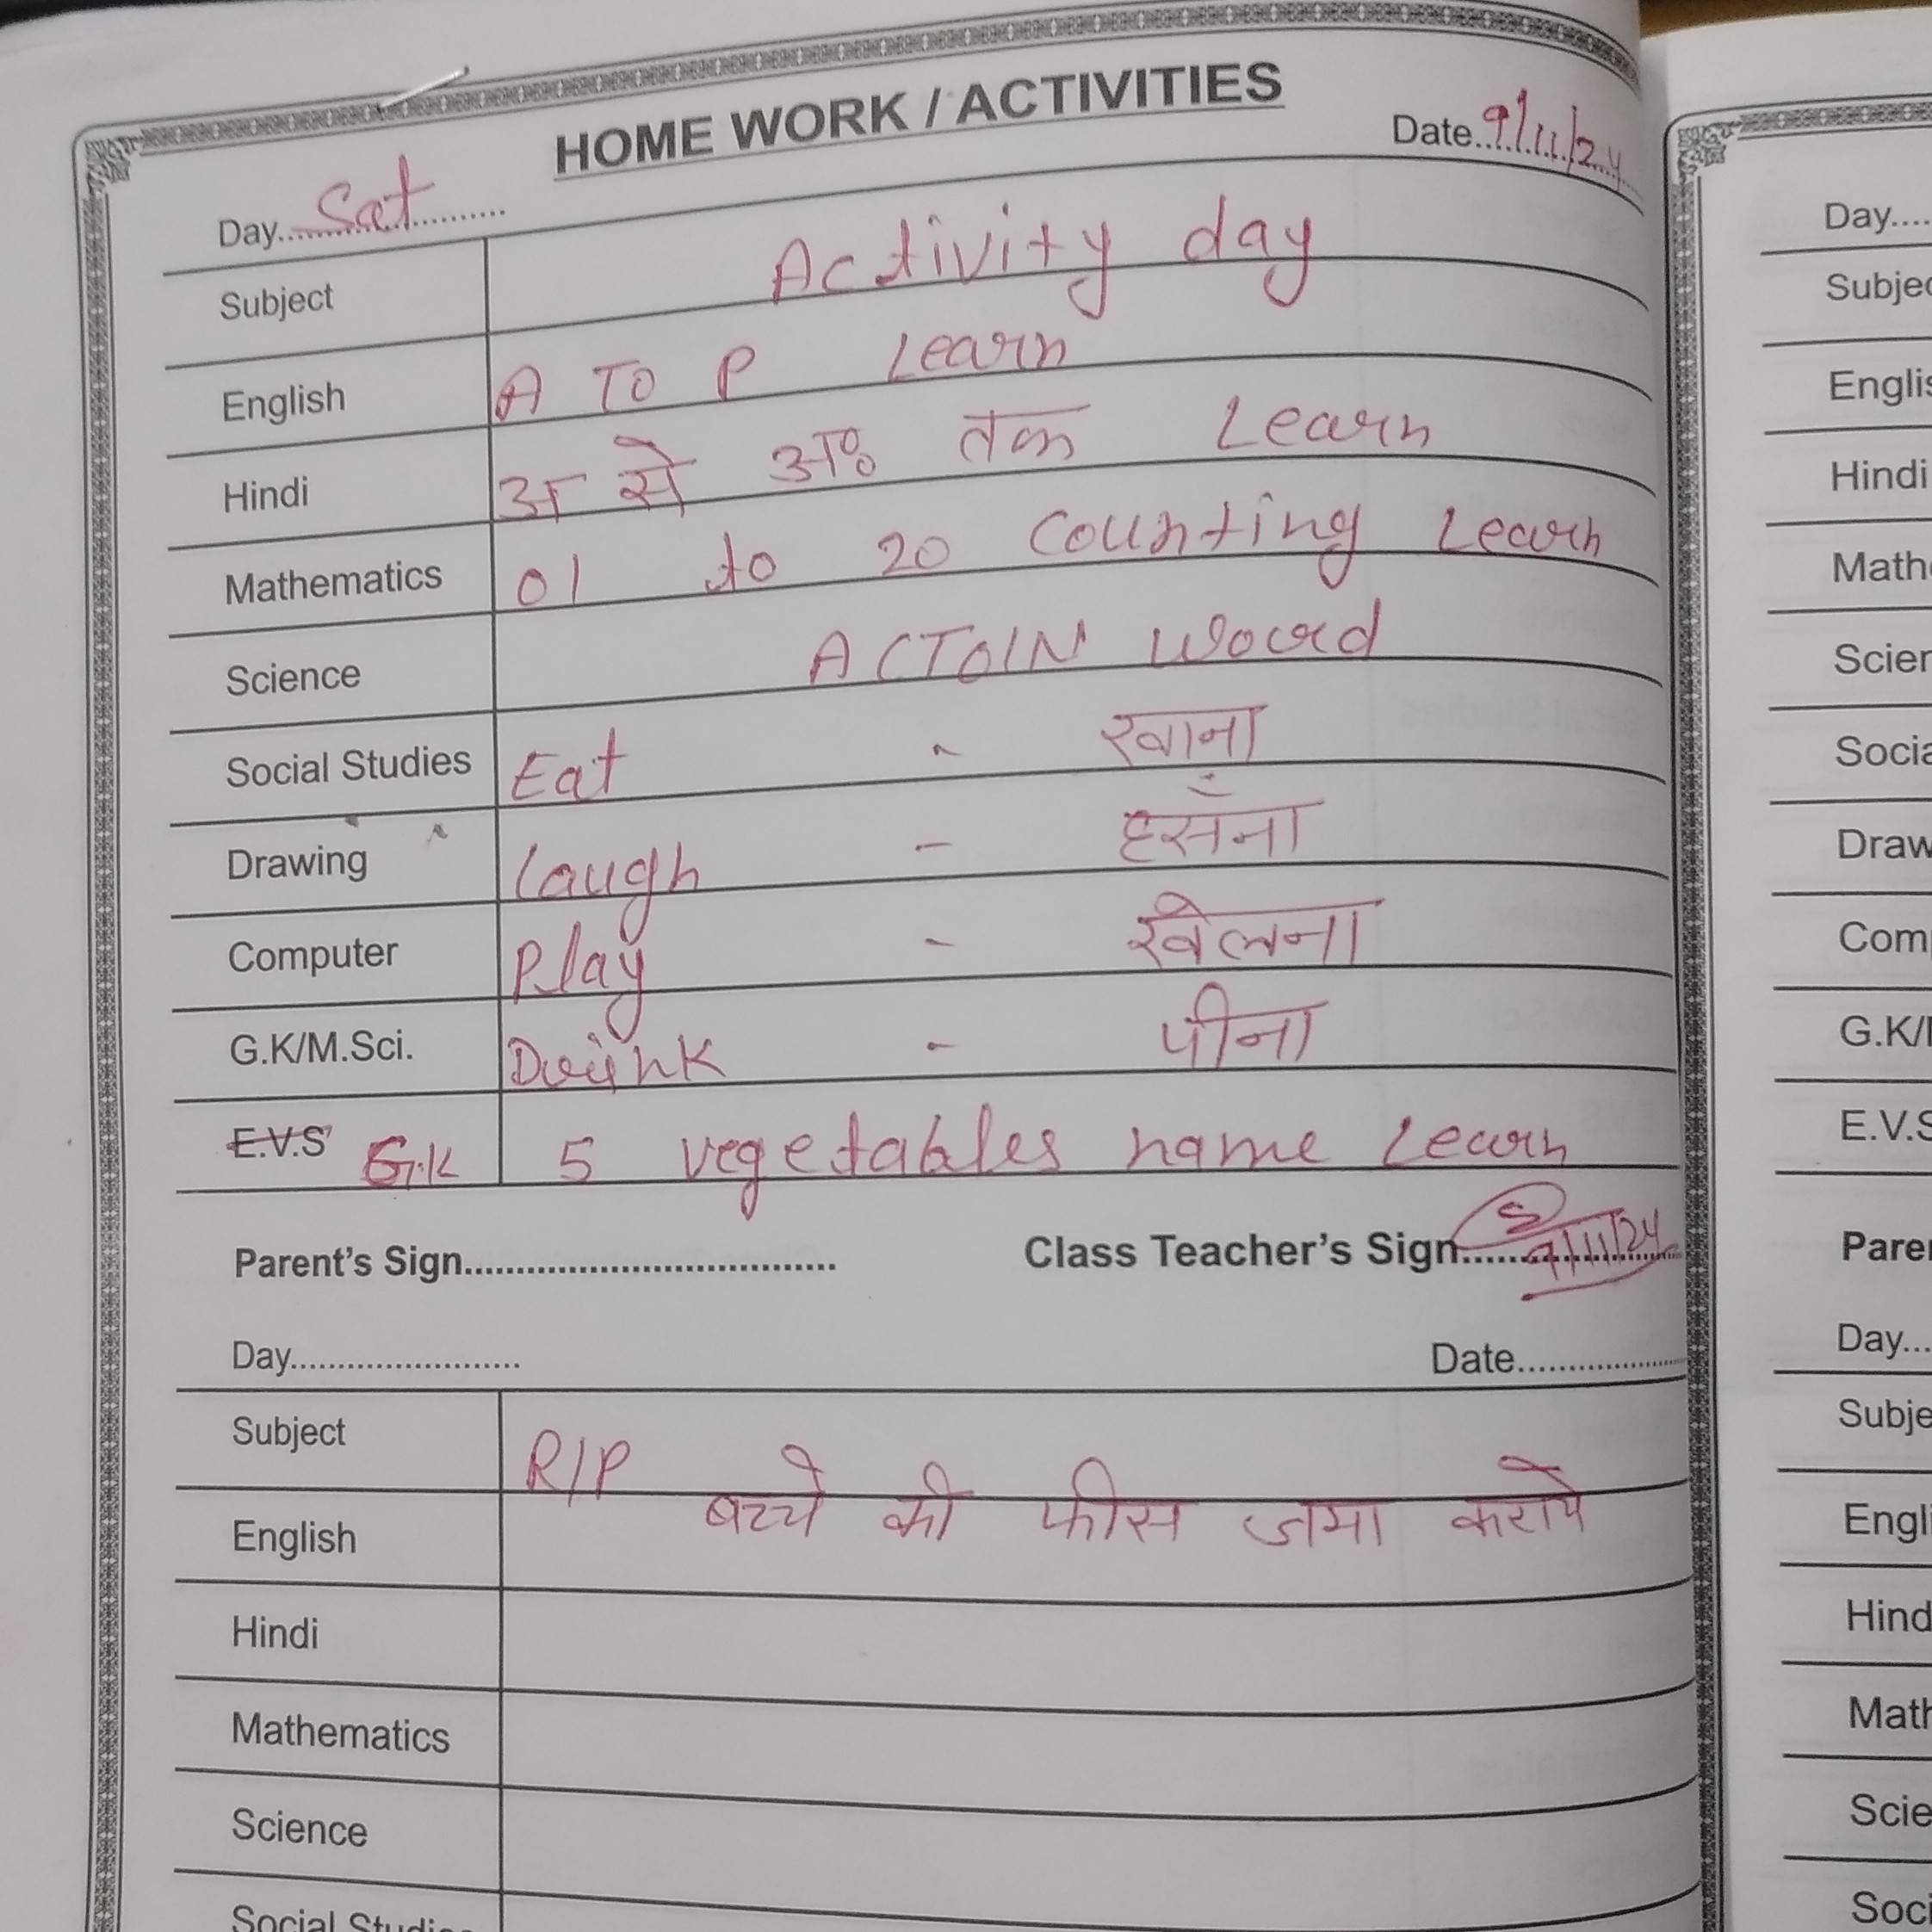 HOME WORK / ACTIVITIES
Day.....Sat..... Date..9/11/24
Subject Activity day
English A TO P Learn
Hindi अ से अः तक Learn
Mathematics 01 to 20 counting Learn
Science ACTOIN word
Social Studies Eat - खाना
Drawing Laugh - हसँना
Computer Play - खेलना
G.K/M.Sci. Drink - पीना
E.V.S G.K 5 vegetables name Learn
Parent's Sign.................................... Class Teacher's Sign....... 9/11/24
Day......................... Date..................
Subject R/P बच्चे की फीस जमा कराये
English
Hindi
Mathematics
Science
Social Studie
Day....
Subjec
Englis
Hindi
Math
Scier
Socia
Draw
Com
G.K/
E.V.S
Pare
Day...
Subje
Engli
Hind
Math
Scie
Soci